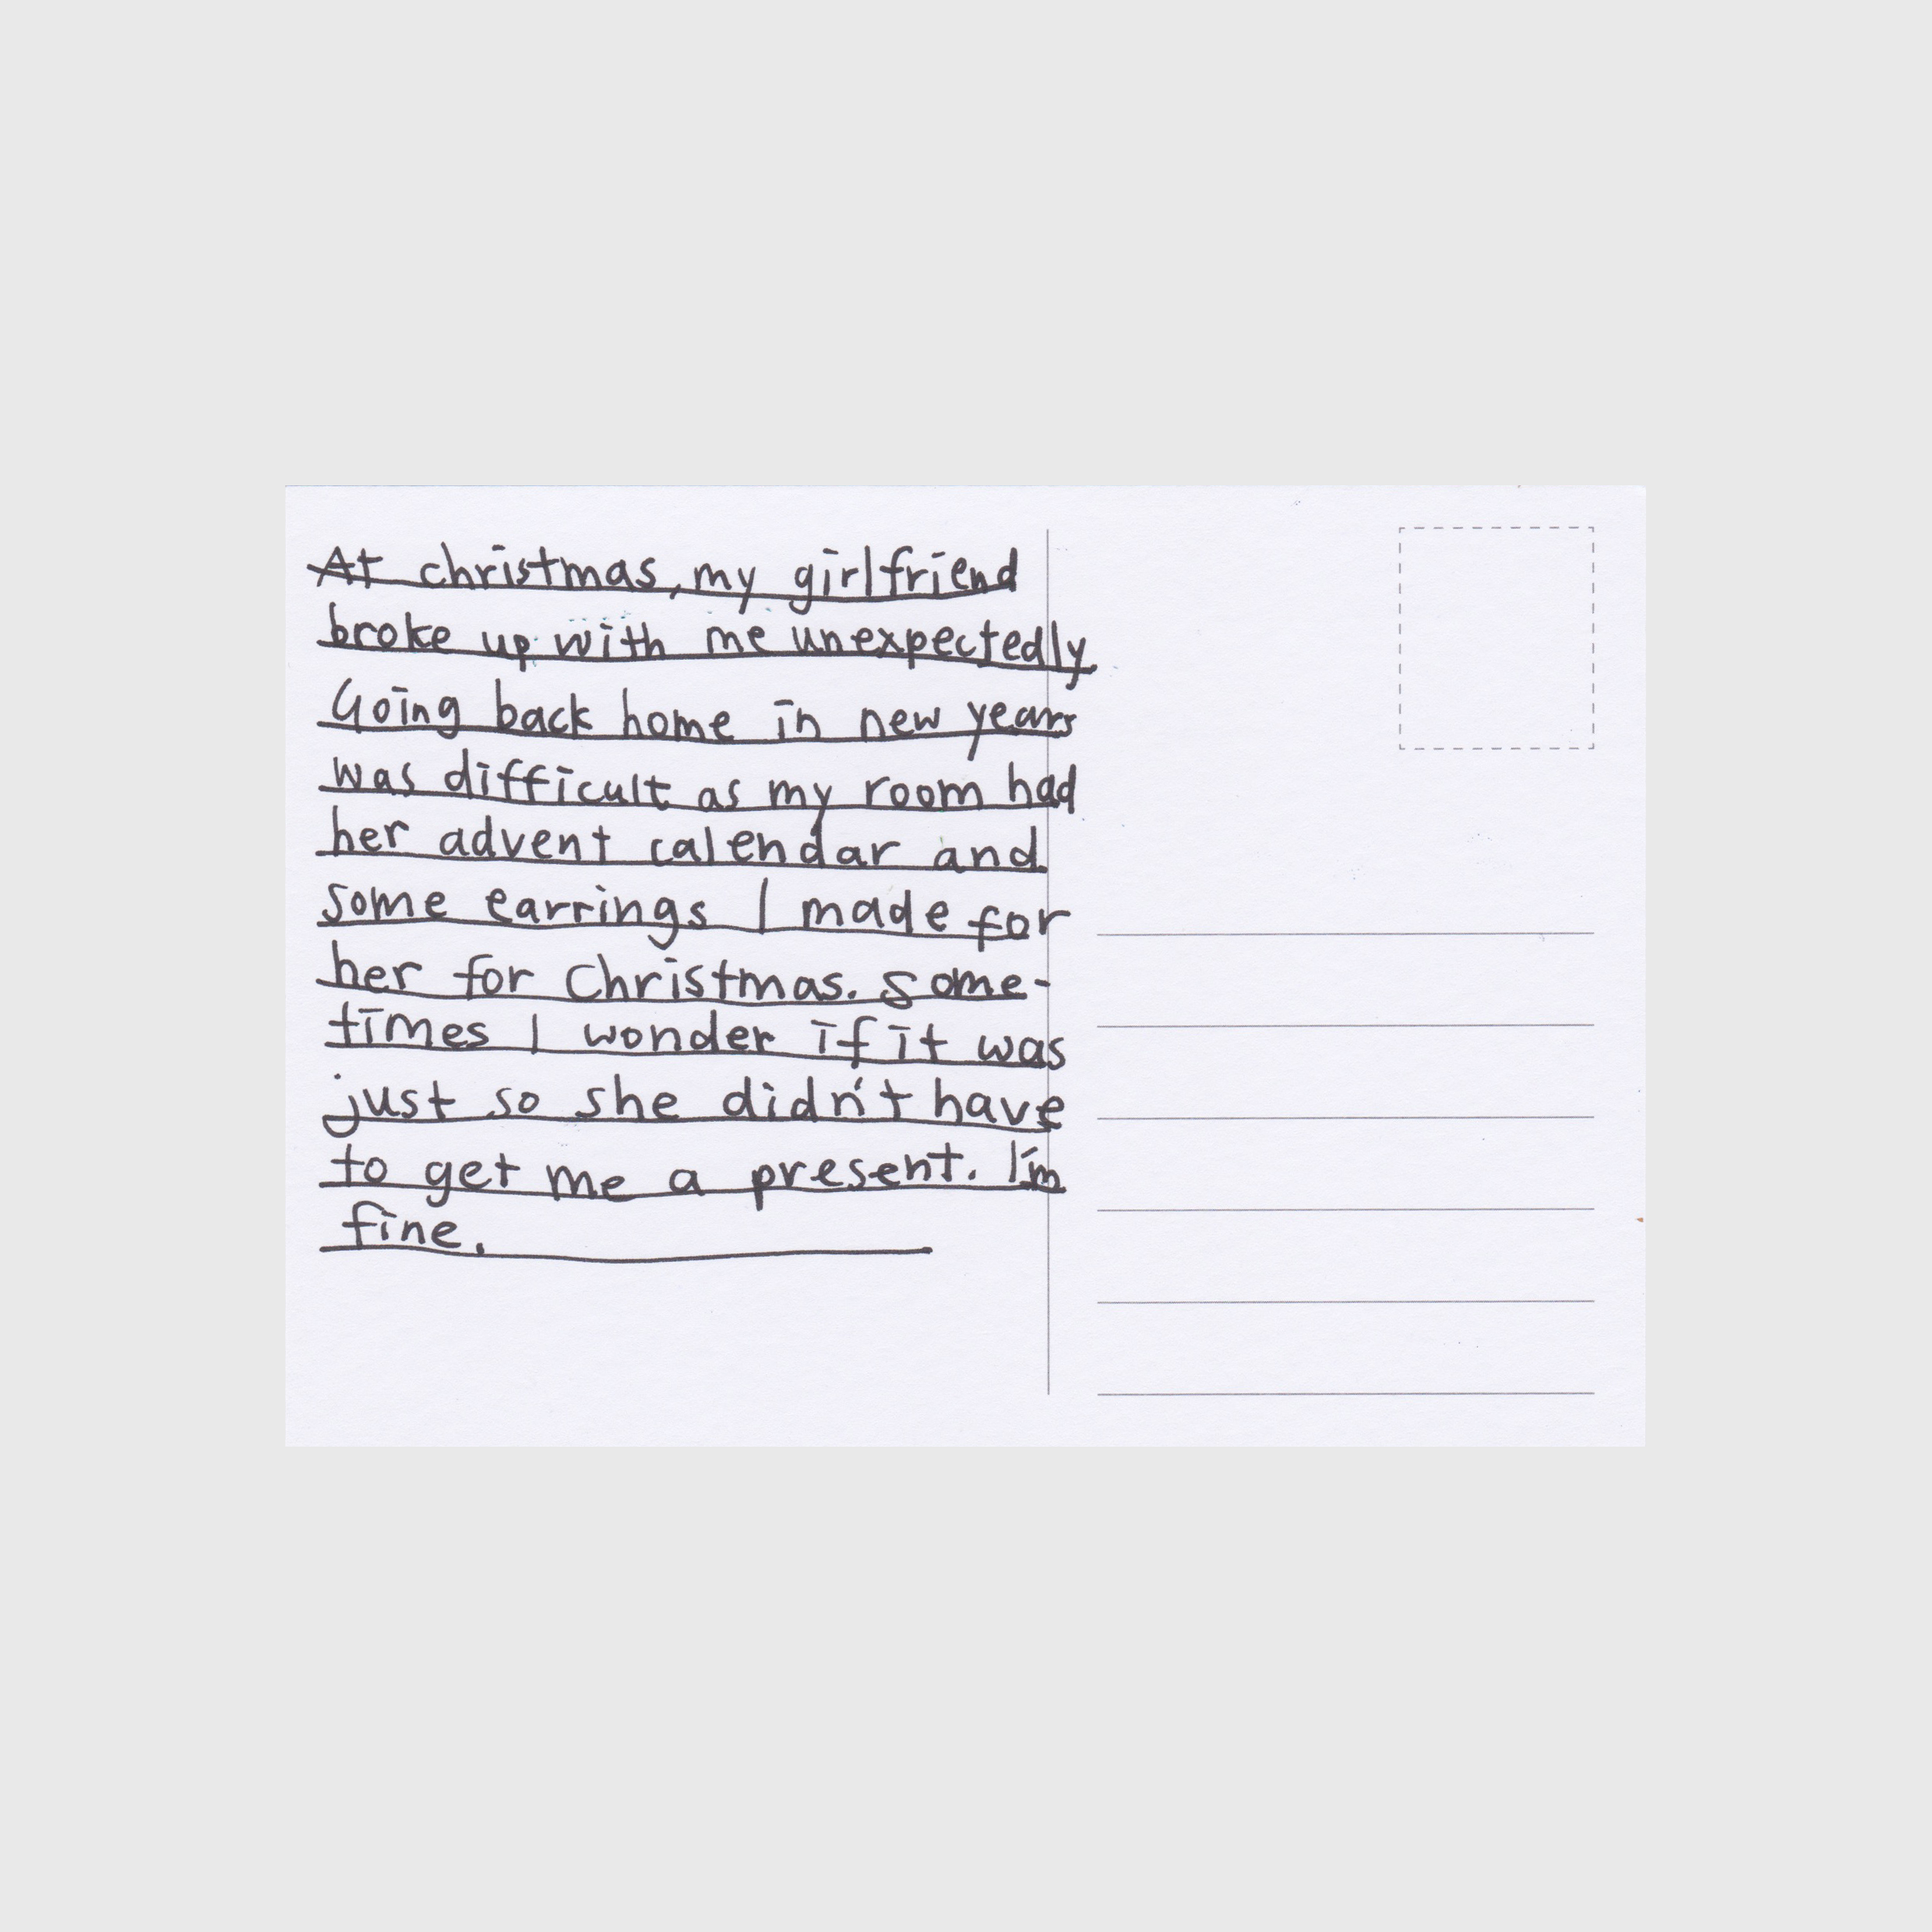 At christmas, my girlfriend
broke up with me unexpectedly
Going back home in new years
was difficult as my room had
her advent calendar and
some earrings I made for
her for Christmas. Some-
times I wonder if it was
just so she didn't have
to get me a present. I'm
fine.